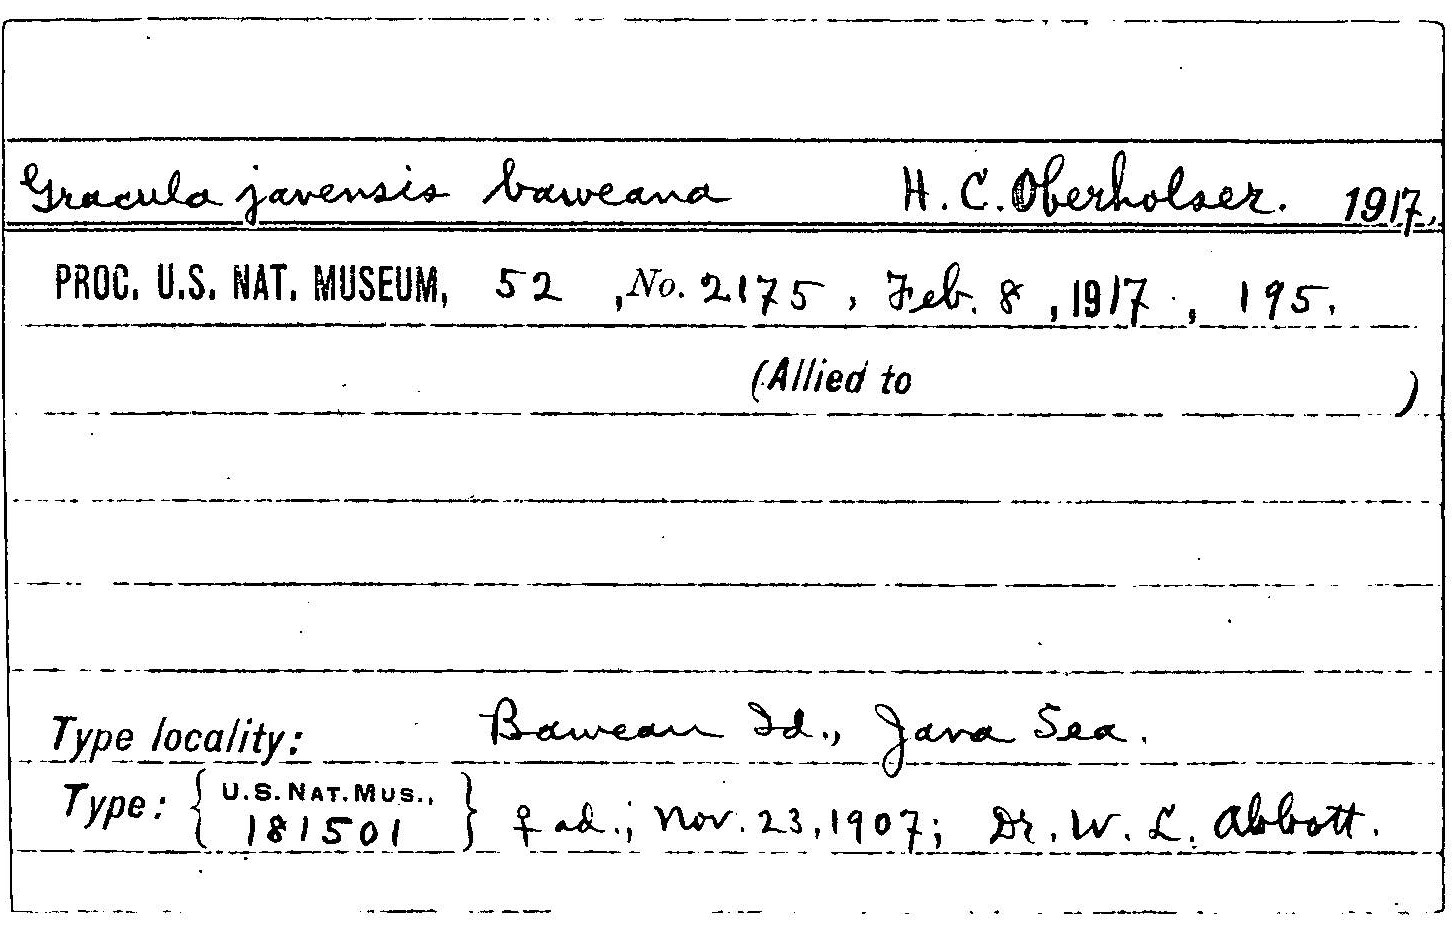 Gracula javensis baweana H. C. Oberholser. 1917.
PROC. U.S. NAT. MUSEUM, 52, No. 2175, Feb. 8, 1917, 195.
(Allied to )
Type locality: Bawean Id., Java Sea.
Type: { U.S. NAT. MUS., 181501 } ♀ ad.; Nov. 23, 1907; Dr. W. L. Abbott.